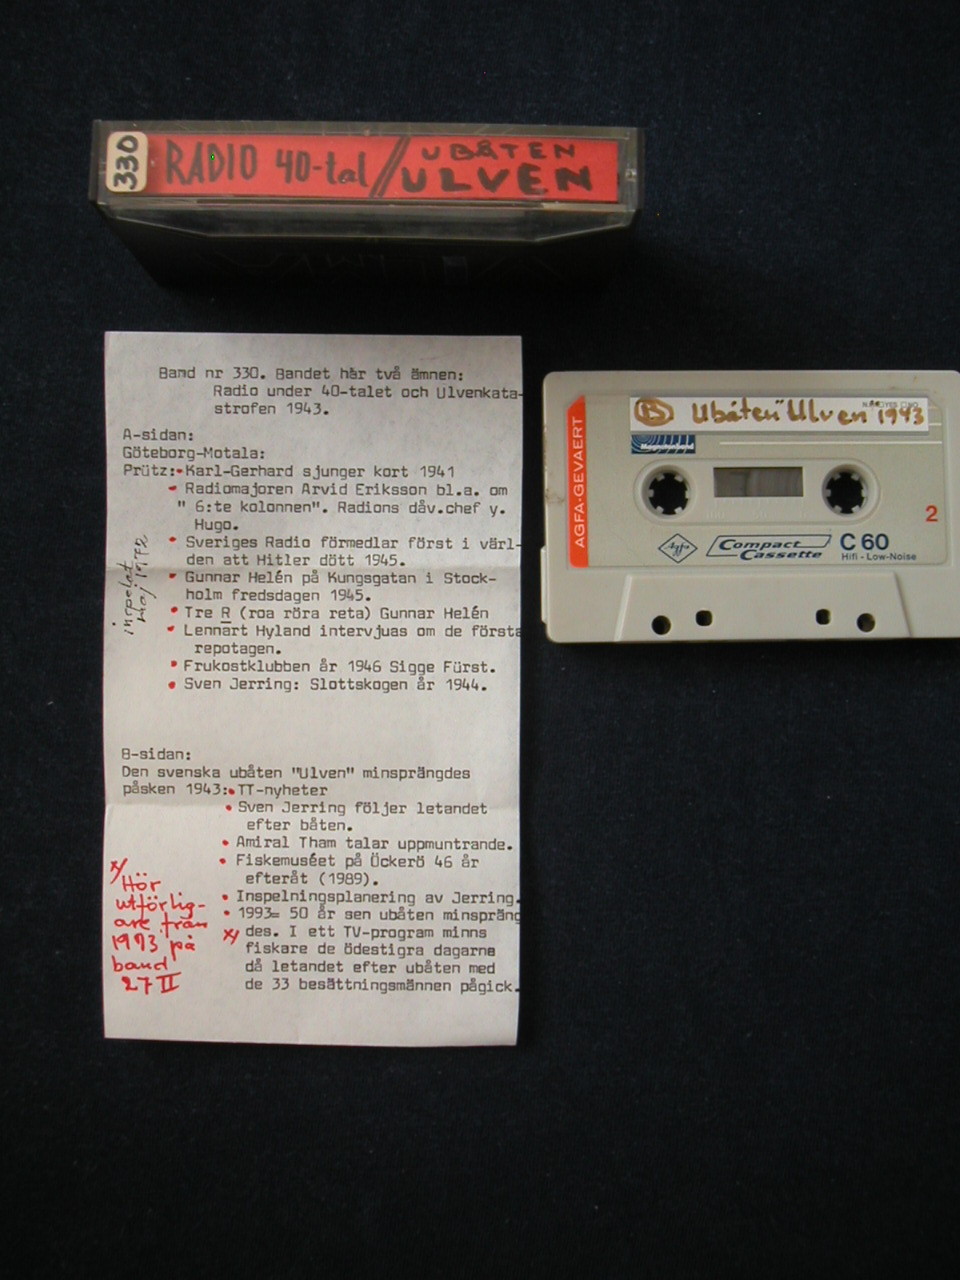 330
RADIO 40-tal//UBÅTEN
ULVEN
Band nr 330. Bandet här två ämnen:
Radio under 40-talet och Ulvenkata-
strofen 1943.
A-sidan:
Göteborg-Motala:
Prütz:•Karl-Gerhard sjunger kort 1941
• Radiomajoren Arvid Eriksson bl.a. om
" 6:te kolonnen". Radions dåv.chef y.
Hugo.
• Sveriges Radio förmedlar först i värl-
den att Hitler dött 1945.
• Gunnar Helén på Kungsgatan i Stock-
holm fredsdagen 1945.
• Tre R (roa röra reta) Gunnar Helén
• Lennart Hyland intervjuas om de första
repotagen.
• Frukostklubben år 1946 Sigge Fürst.
• Sven Jerring: Slottskogen år 1944.
inspelat
maj
B-sidan:
Den svenska ubåten "Ulven" minsprängdes
påsken 1943:•TT-nyheter
• Sven Jerring följer letandet
efter båten.
• Amiral Tham talar uppmuntrande.
• Fiskemuséet på Öckerö 46 år
efteråt (1989).
• Inspelningsplanering av Jerring.
• 1993= 50 år sen ubåten minspräng
x/ des. I ett TV-program minns
fiskare de ödestigra dagarna
då letandet efter ubåten med
de 33 besättningsmännen pågick.
x/
Hör
utförlig-
are från
1993 på
band
27 II
B Ubåten "Ulven 1943
AGFA-GEVAERT
2
Agfa Compact Cassette C 60
Hifi - Low-Noise